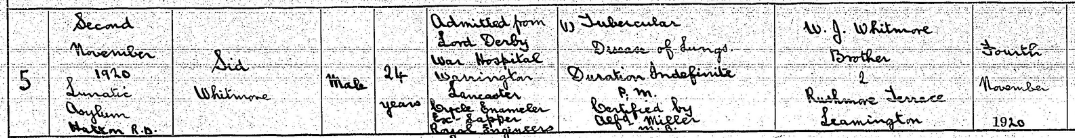 5
Second
November
1920
Lunatic
Asylum
Hatton R.D.
Sid
Whitmore
Male
24
years
Admitted from
Lord Derby
War Hospital
Warrington
Lancaster
Cycle Enameler
Ex Sapper
Royal Engineers
(1) Tubercular
Disease of Lungs.
Duration Indefinite
P.M.
Certified by
Alfd Miller
M.B.
W. J. Whitmore
Brother
2
Rushmore Terrace
Leamington
Fourth
November
1920